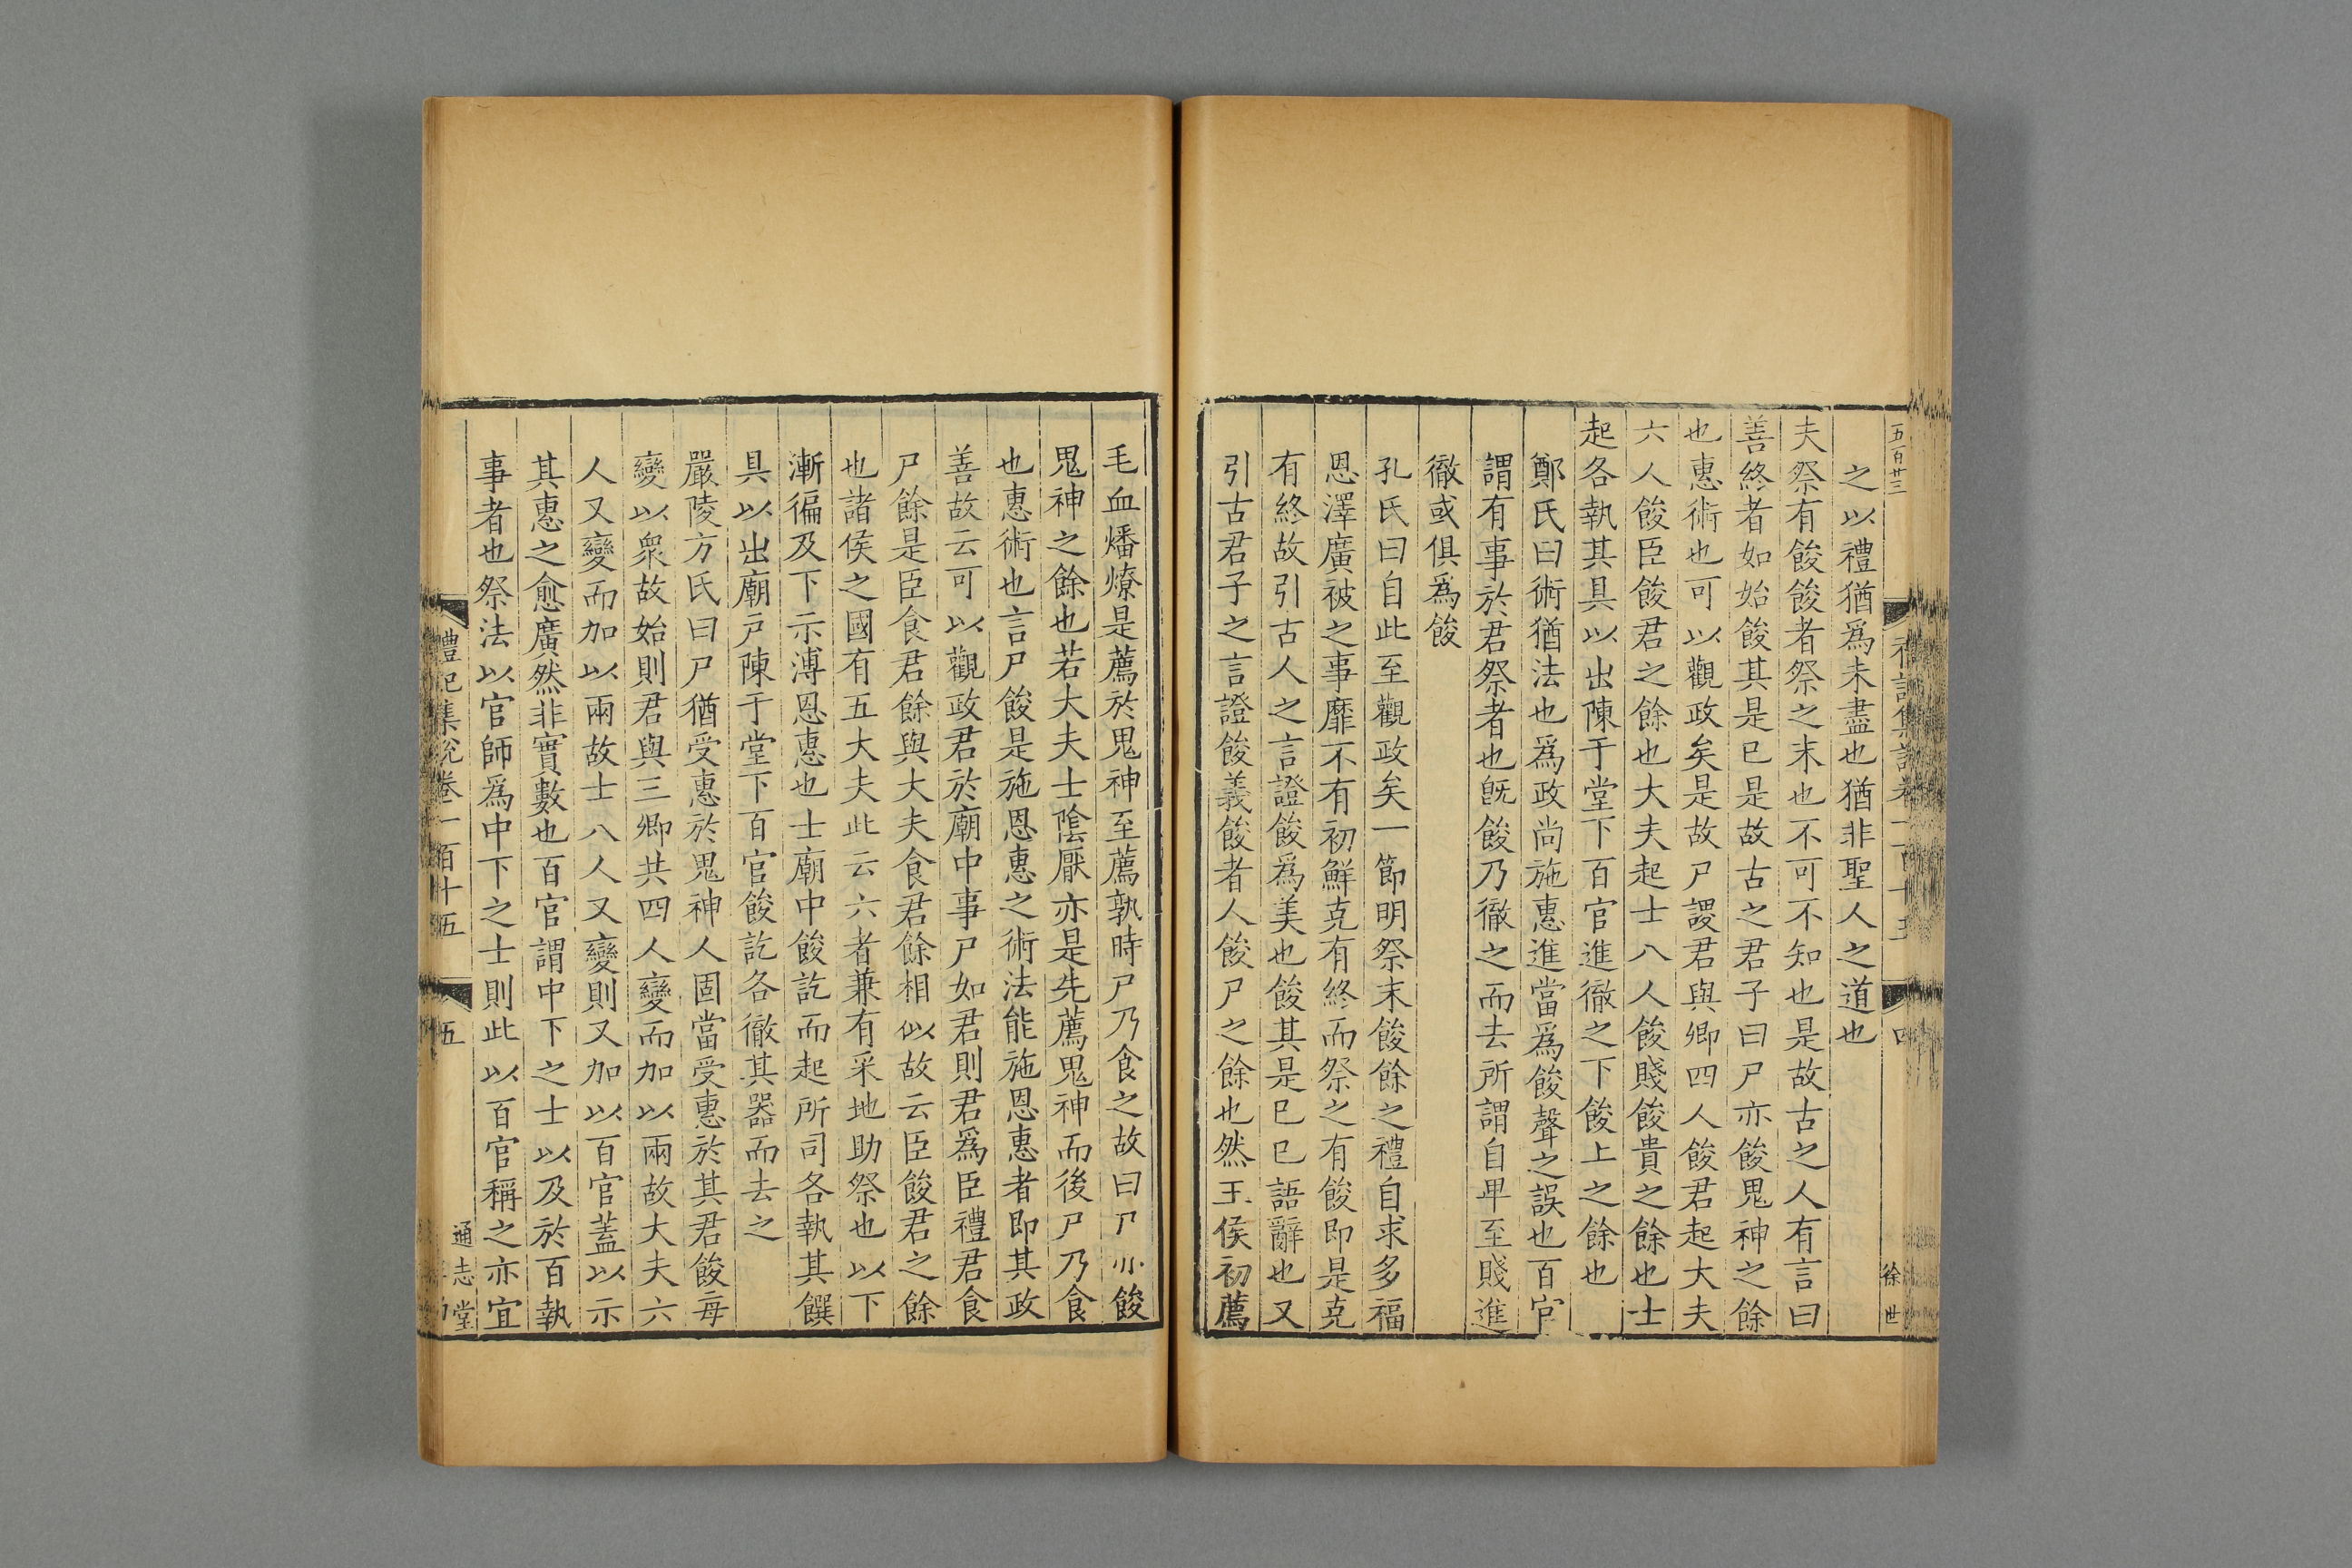 五百廿三
禮記集說卷一百十五
四
徐世
之以禮猶爲未盡也猶非聖人之道也
夫祭有餕餕者祭之末也不可不知也是故古之人有言曰
善終者如始餕其是已是故古之君子曰尸亦餕鬼神之餘
也惠術也可以觀政矣是故尸謖君與卿四人餕君起大夫
六人餕臣餕君之餘也大夫起士八人餕賤餕貴之餘也士
起各執其具以出陳于堂下百官進徹之下餕上之餘也
鄭氏曰術猶法也爲政尚施惠進當爲餕聲之誤也百官
謂有事於君祭者也旣餕乃徹之而去所謂自卑至賤進
徹或俱爲餕
孔氏曰自此至觀政矣一節明祭末餕餘之禮自求多福
恩澤廣被之事靡不有初鮮克有終而祭之有餕即是克
有終故引古人之言證餕爲美也餕其是已已語辭也又
引古君子之言證餕義餕者人餕尸之餘也然王侯初薦
毛血燔燎是薦於鬼神至薦孰時尸乃食之故曰尸亦餕
鬼神之餘也若大夫士陰厭亦是先薦鬼神而後尸乃食
也惠術也言尸餕是施恩惠之術法能施恩惠者即其政
善故云可以觀政君於廟中事尸如君則君爲臣禮君食
尸餘是臣食君餘與大夫食君餘相似故云臣餕君之餘
也諸侯之國有五大夫此云六者兼有采地助祭也以下
漸徧及下示溥恩惠也士廟中餕訖而起所司各執其饌
具以出廟戸陳于堂下百官餕訖各徹其器而去之
嚴陵方氏曰尸猶受惠於鬼神人固當受惠於其君餕每
變以衆故始則君與三卿共四人變而加以兩故大夫六
人又變而加以兩故士八人又變則又加以百官蓋以示
其惠之愈廣然非實數也百官謂中下之士以及於百執
事者也祭法以官師爲中下之士則此以百官稱之亦宜
禮記集說卷一百十五
五
通志堂